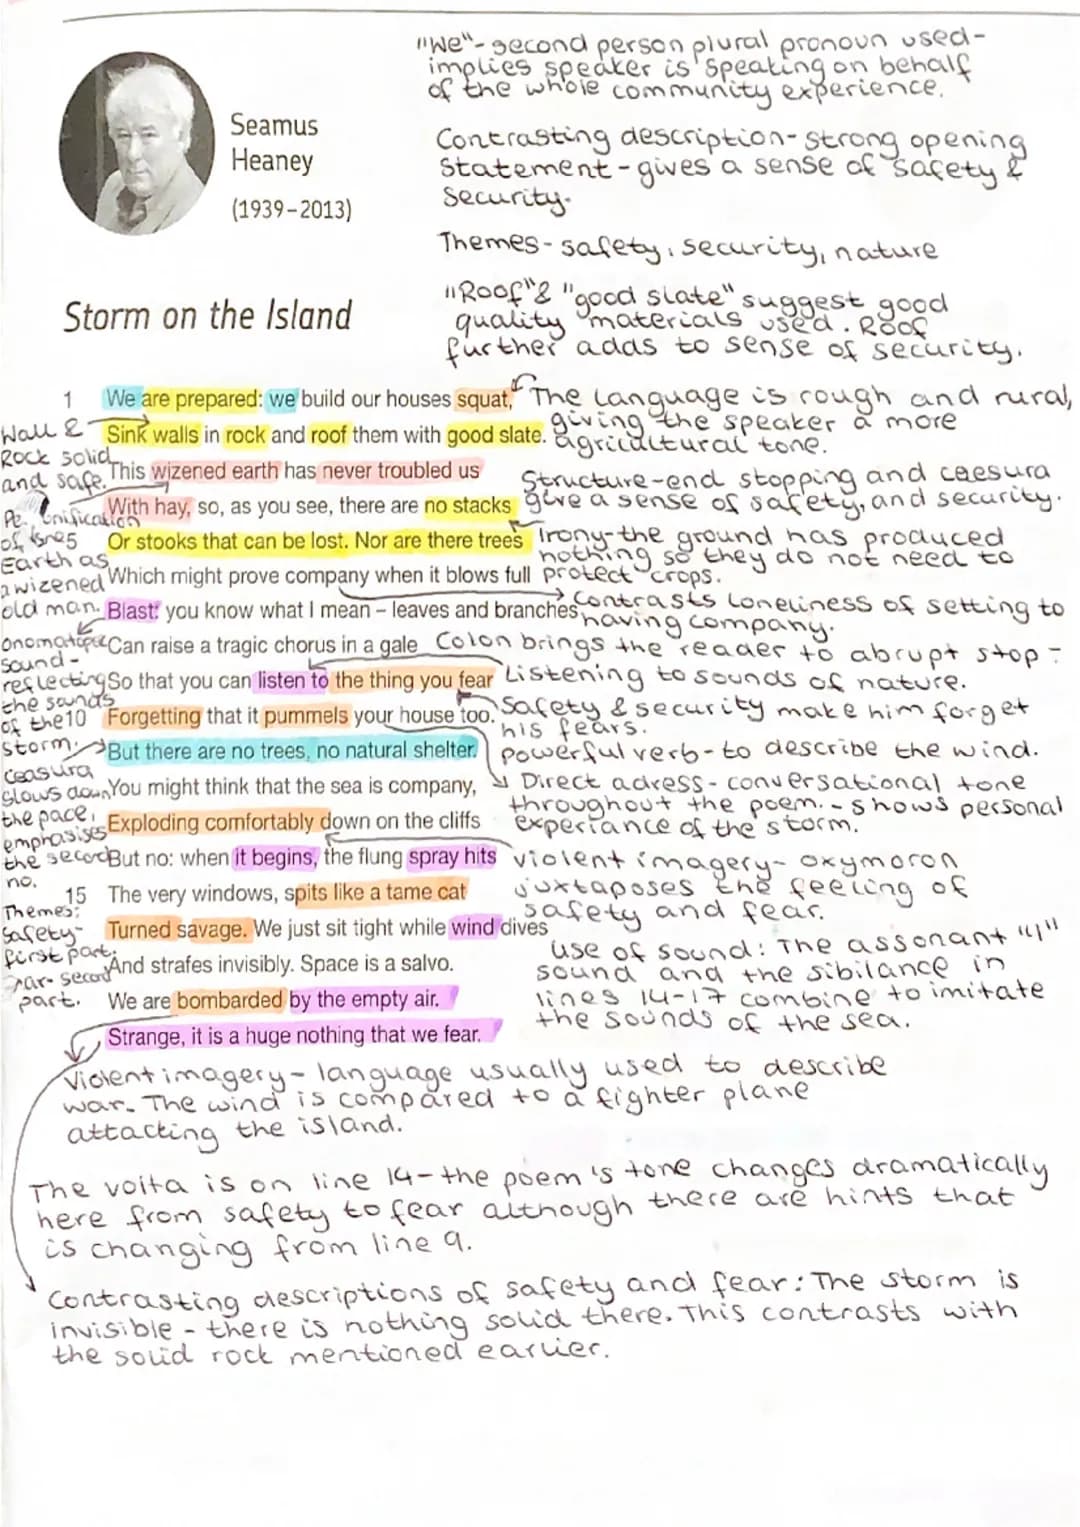 "We"- second person plural pronoun used-
implies speaker is speaking on behalf
of the whole community experience.
Seamus
Heaney
(1939–2013)
Contrasting description- strong opening
statement - gives a sense of safety &
security.
Themes- safety, security, nature
"Roof" & "good slate" suggest good
quality materials used. Roof
further adds to sense of security.
Storm on the Island
1 We are prepared: we build our houses squat,
Sink walls in rock and roof them with good slate.
This wizened earth has never troubled us
With hay, so, as you see, there are no stacks
5 Or stooks that can be lost. Nor are there trees
Which might prove company when it blows full
Blast: you know what I mean – leaves and branches
Can raise a tragic chorus in a gale
So that you can listen to the thing you fear
10 Forgetting that it pummels your house too.
But there are no trees, no natural shelter.
You might think that the sea is company,
Exploding comfortably down on the cliffs
But no: when it begins, the flung spray hits
15 The very windows, spits like a tame cat
Turned savage. We just sit tight while wind dives
And strafes invisibly. Space is a salvo.
We are bombarded by the empty air.
Strange, it is a huge nothing that we fear.
The language is rough and rural,
giving the speaker a more
agricultural tone.
Structure-end stopping and caesura
give a sense of safety, and security.
Irony-the ground has produced
nothing so they do not need to
protect crops.
Contrasts loneliness of setting to
having company.
Colon brings the reader to abrupt stop -
Listening to sounds of nature.
Safety & security make him forget
his fears.
powerful verb- to describe the wind.
Direct adress- conversational tone
throughout the poem. - shows personal
experiance of the storm.
violent imagery- oxymoron
juxtaposes the feeling of
safety and fear.
use of sound: The assonant "i"
sound and the sibilance in
lines 14-17 combine to imitate
the sounds of the sea.
Wall &
Rock solid
and safe.
Earth as
a wizened
old man.
sound -
reflecting
the sounds
of the
storm.
Ceasura
slows down
the pace,
emphasises
the second
no.
Themes:
Safety-
first part.
second
part.
Violent imagery- language usually used to describe
war. The wind is compared to a fighter plane
attacking the island.
The volta is on line 14- the poem's tone changes dramatically
here from safety to fear although there are hints that
is changing from line 9.
Contrasting descriptions of safety and fear: The storm is
invisible - there is nothing solid there. This contrasts with
the solid rock mentioned earlier.